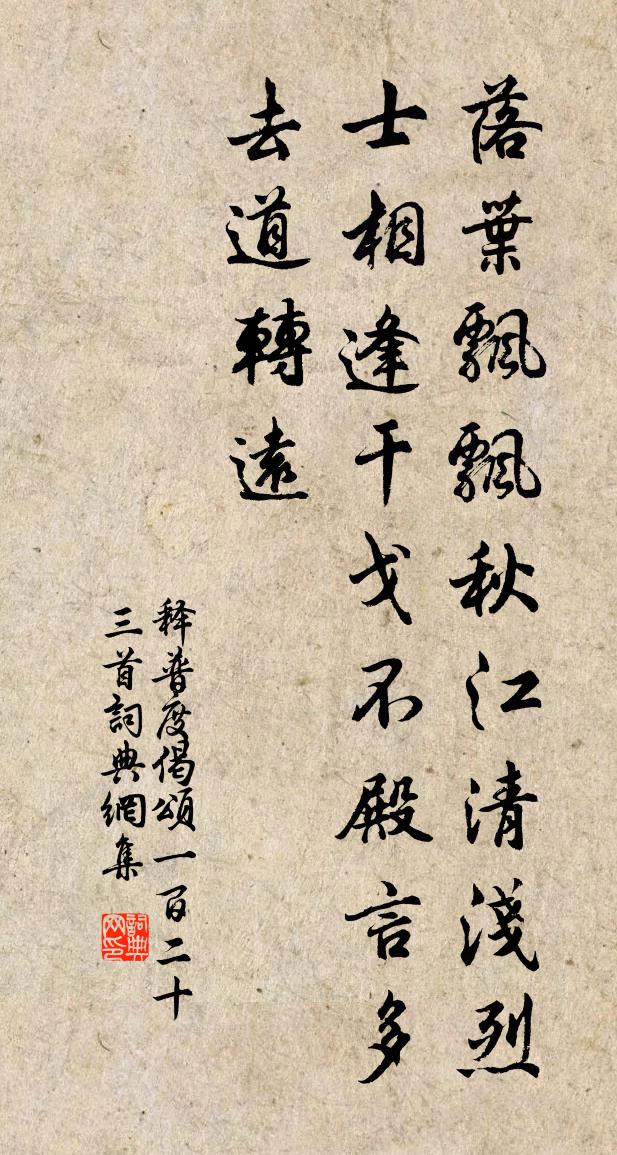 落葉飄飄秋江清淺烈
士相逢干戈不殿言多
去道轉遠
释普度偈頌一百二十
三首詞典網集
詞典網印